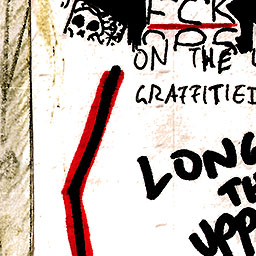 FCK
ON THE
GRAFFITIED
LONG
TH
UPP